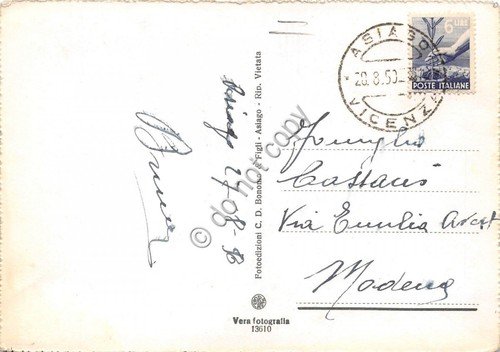 Asiago 29-8-50
Fotoedizioni C. D. Bonomo & Figli - Asiago - Rip. Vietata
© do not copy
Vera fotografia
13610
ASIAGO
20.8.50
VICENZA
6 LIRE
POSTE ITALIANE
Famiglia
Cassani
Via Emilia
Modena